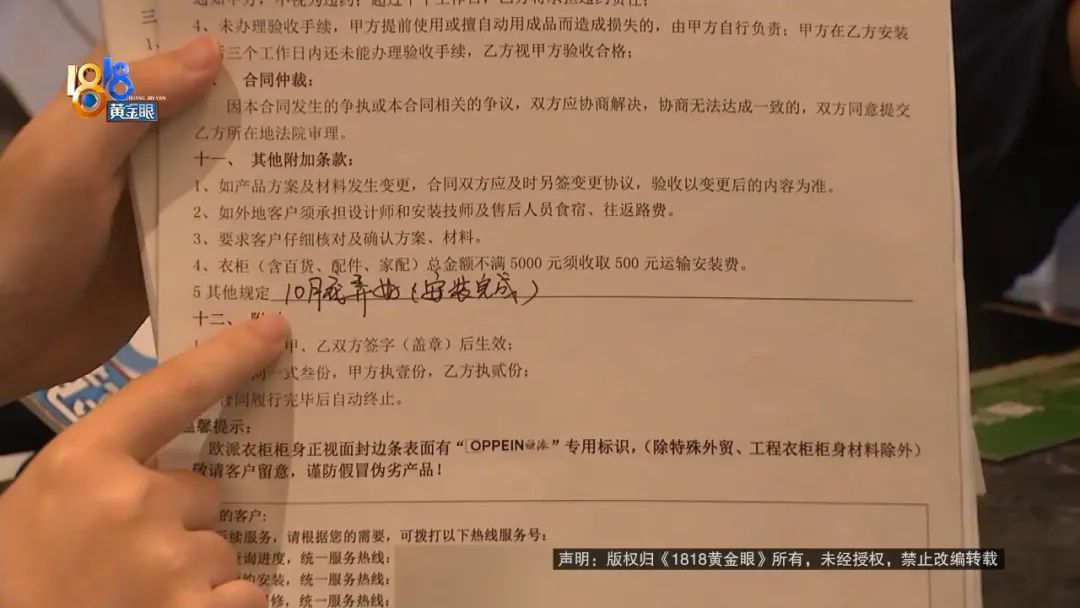 4、未办理验收手续，甲方提前使用或擅自动用成品而造成损失的，由甲方自行负责；甲方在乙方安装
三个工作日内还未能办理验收手续，乙方视甲方验收合格；
合同仲裁：
因本合同发生的争执或本合同相关的争议，双方应协商解决，协商无法达成一致的，双方同意提交
乙方所在地法院审理。
十一、 其他附加条款：
1、如产品方案及材料发生变更，合同双方应及时另签变更协议，验收以变更后的内容为准。
2、如外地客户须承担设计师和安装技师及售后人员食宿、往返路费。
3、要求客户仔细核对及确认方案、材料。
4、衣柜（含百货、配件、家配）总金额不满 5000 元须收取 500 元运输安装费。
5 其他规定 10月底弄好（安装完成）
十二、
甲、乙双方签字（盖章）后生效；
一式叁份，甲方执壹份，乙方执贰份；
合同履行完毕后自动终止。
温馨提示：
欧派衣柜柜身正视面封边条表面有“OPPEIN欧派”专用标识，（除特殊外贸、工程衣柜柜身材料除外）
敬请客户留意，谨防假冒伪劣产品！
的客户:
服务，请根据您的需要，可拨打以下热线服务号:
查询进度，统一服务热线:
的安装，统一服务热线:
修，统一服务热线:
1818
HUANG JIN YAN
黄金眼
声明：版权归《1818黄金眼》所有，未经授权，禁止改编转载